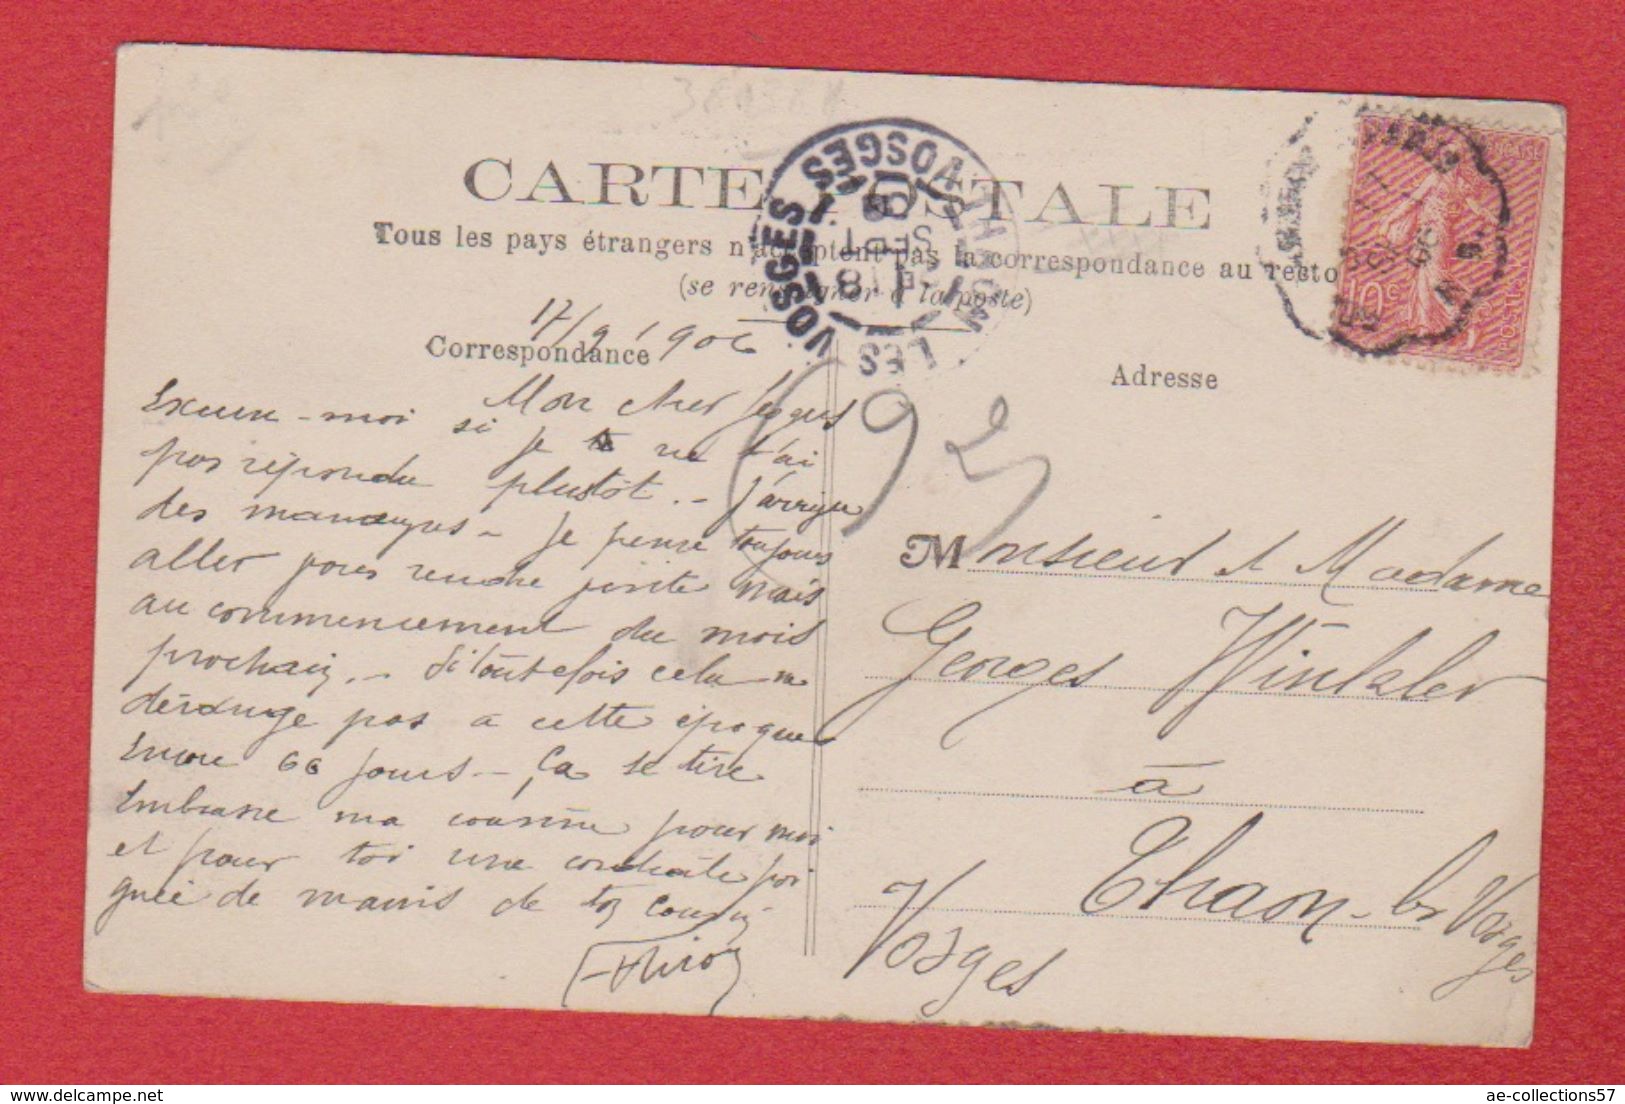 CARTE POSTALE
Tous les pays étrangers n'acceptent pas la correspondance au recto
(se renseigner à la poste)
17/9/1906
Correspondance
Adresse
Mon cher
Excuse-moi si je ne t'ai
pas répondu plustôt. - J'arrive
des manœuvres - je pense toujours
aller vous rendre visite mais
au commencement du mois
prochain. - Si toutefois cela ne
dérange pas a cette époque
Encore 66 jours - Ça se tire
Embrasse ma cousine pour moi
et pour toi une cordiale poi
gnée de mains de ton Cousin
Monsieur et Madame
Georges Winkler
à
Thaon-les Vosges
Vosges
THAON LES VOSGES VOSGES
SEPT
10c
POSTES
92
ae-collections57